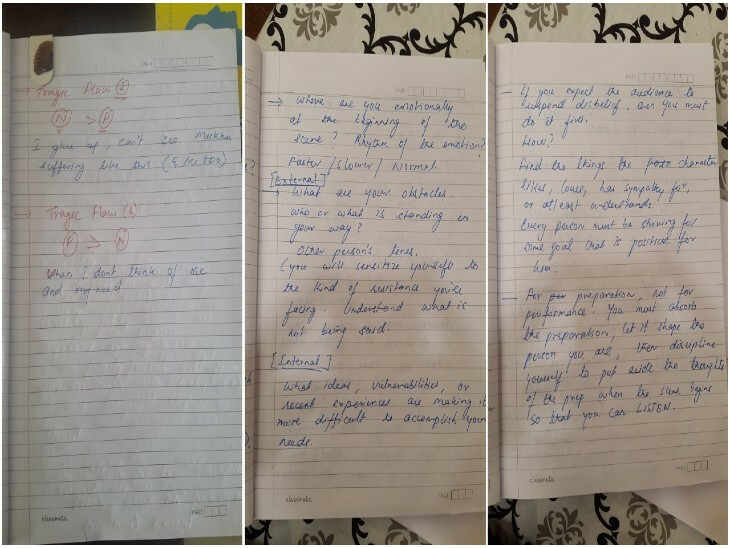 → Tragic Flaw (2)
(N) > (P)
I give up, can't see
suffering like this (& Me too)
→ Tragic Flaw (1)
(P) > (N)
When I don't think of me
and my need
classmate
PAGE
→ Where are you emotionally
at the beginning of the
scene? Rhythm of the emotion?
Faster / Slower / Normal.
[External]
→ What are your obstacles.
Who or what is standing in
your way?
Other person's lines.
(you will sensitize yourself to
the kind of resistance you're
facing. Understand what is
not being said.
[Internal]
What ideas, vulnerabilities, or
recent experiences are making it
more difficult to accomplish your
needs.
classmate
PAGE
— If you expect the audience to
suspend disbelief, then you must
do it first.
How?
Find the things the character
likes, loves, has sympathy for,
or atleast understands.
Every person must be striving for
some goal that is positive for
him.
— For preparation, not for
performance. You must absorb
the preparation, let it shape the
person you are, then discipline
yourself to put aside the thoughts
of the prep when the scene begins
so that you can LISTEN.
classmate
PAGE